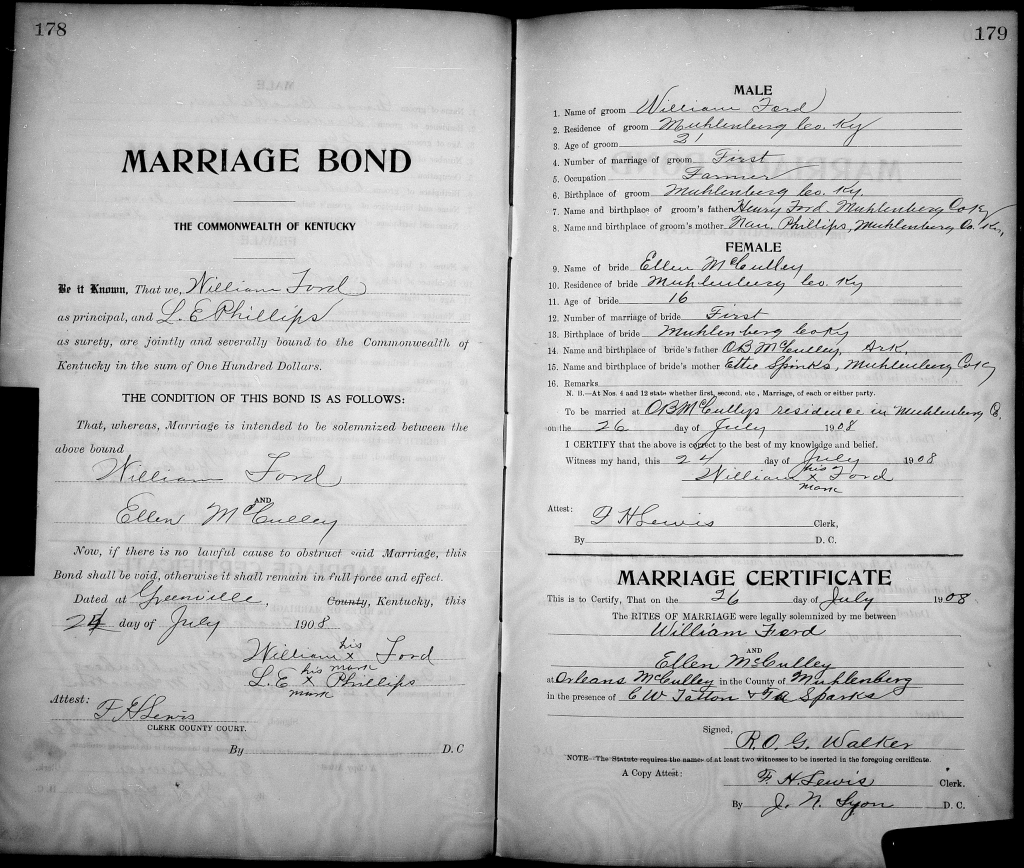 178
MARRIAGE BOND
THE COMMONWEALTH OF KENTUCKY
Be it Known, That we, William Ford
as principal, and L. E Phillips
as surety, are jointly and severally bound to the Commonwealth of
Kentucky in the sum of One Hundred Dollars.
THE CONDITION OF THIS BOND IS AS FOLLOWS:
That, whereas, Marriage is intended to be solemnized between the
above bound
William Ford
AND
Ellen McCulley
Now, if there is no lawful cause to obstruct said Marriage, this
Bond shall be void, otherwise it shall remain in full force and effect.
Dated at Greenville, County, Kentucky, this
24 day of July 1908
William his x mark Ford
L. E his x mark Phillips
Attest:
F. H Lewis
CLERK COUNTY COURT.
By D. C
179
MALE
1. Name of groom William Ford
2. Residence of groom Muhlenberg Co. Ky
3. Age of groom 21
4. Number of marriage of groom First
5. Occupation Farmer
6. Birthplace of groom Muhlenberg Co. Ky
7. Name and birthplace of groom's father Henry Ford. Muhlenberg Co Ky
8. Name and birthplace of groom's mother Nan. Phillips, Muhlenberg Co. Ky.
FEMALE
9. Name of bride Ellen McCulley
10. Residence of bride Muhlenberg Co. Ky
11. Age of bride 16
12. Number of marriage of bride First
13. Birthplace of bride Muhlenberg Co Ky
14. Name and birthplace of bride's father O B McCulley, Ark.
15. Name and birthplace of bride's mother Ettie Spinks, Muhlenberg Co Ky
16. Remarks
N. B.—At Nos. 4 and 12 state whether first, second, etc., Marriage, of each or either party.
To be married at O B McCullys residence in Muhlenberg C.
on the 26 day of July 1908
I CERTIFY that the above is correct to the best of my knowledge and belief.
Witness my hand, this 24 day of July 1908
William his x mark Ford
Attest: F H Lewis Clerk,
By D. C.
MARRIAGE CERTIFICATE
This is to Certify, That on the 26 day of July 1908
The RITES OF MARRIAGE were legally solemnized by me between
William Ford
AND
Ellen McCulley
at Orleans McCulley in the County of Muhlenberg
in the presence of C W Tatton & A Sparks
Signed,
R. O. G. Walker
NOTE—The Statute requires the names of at least two witnesses to be inserted in the foregoing certificate.
A Copy Attest: F. H. Lewis Clerk.
By J. N. Lyon D. C.